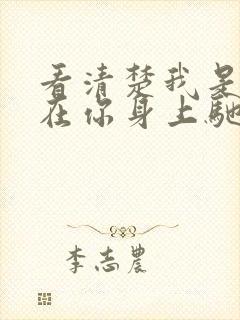 看清楚我是
在你身上馳
李志農